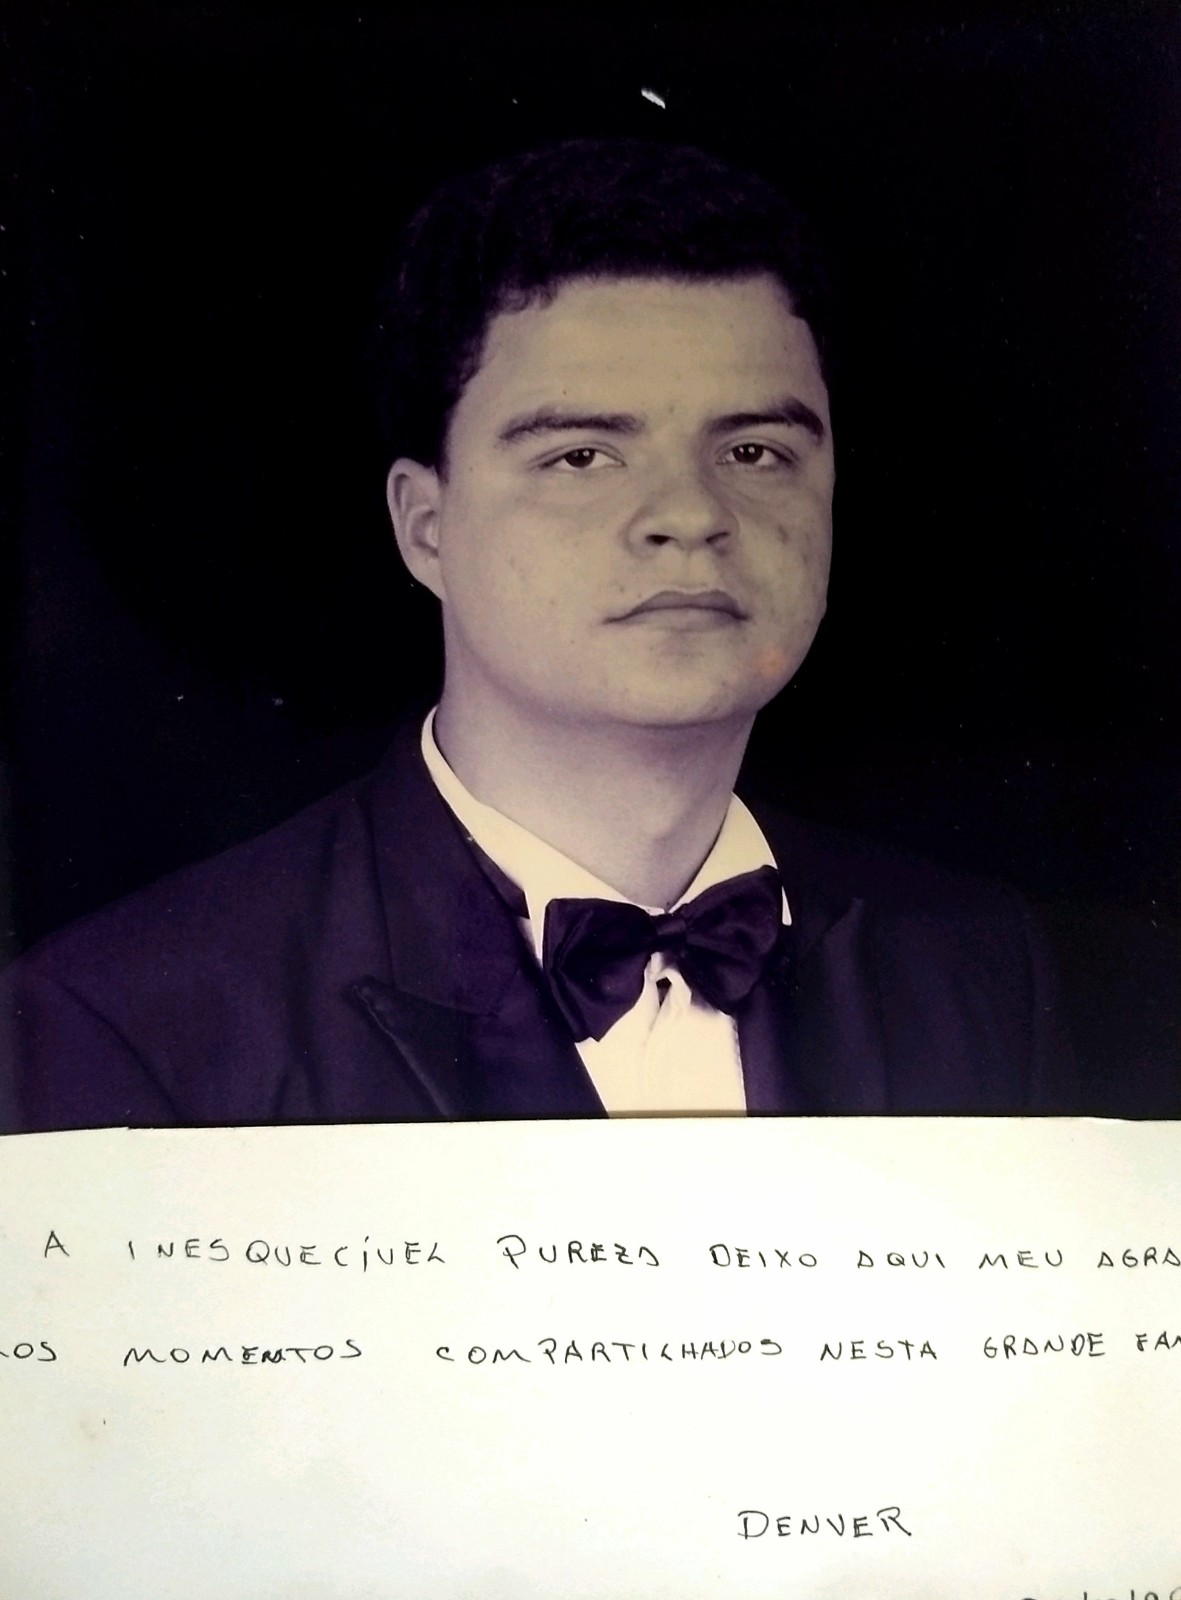 A INESQUECÍVEL PUREZA DEIXO AQUI MEU AGRA
LOS MOMENTOS COMPARTILHADOS NESTA GRANDE FAM
DENVER